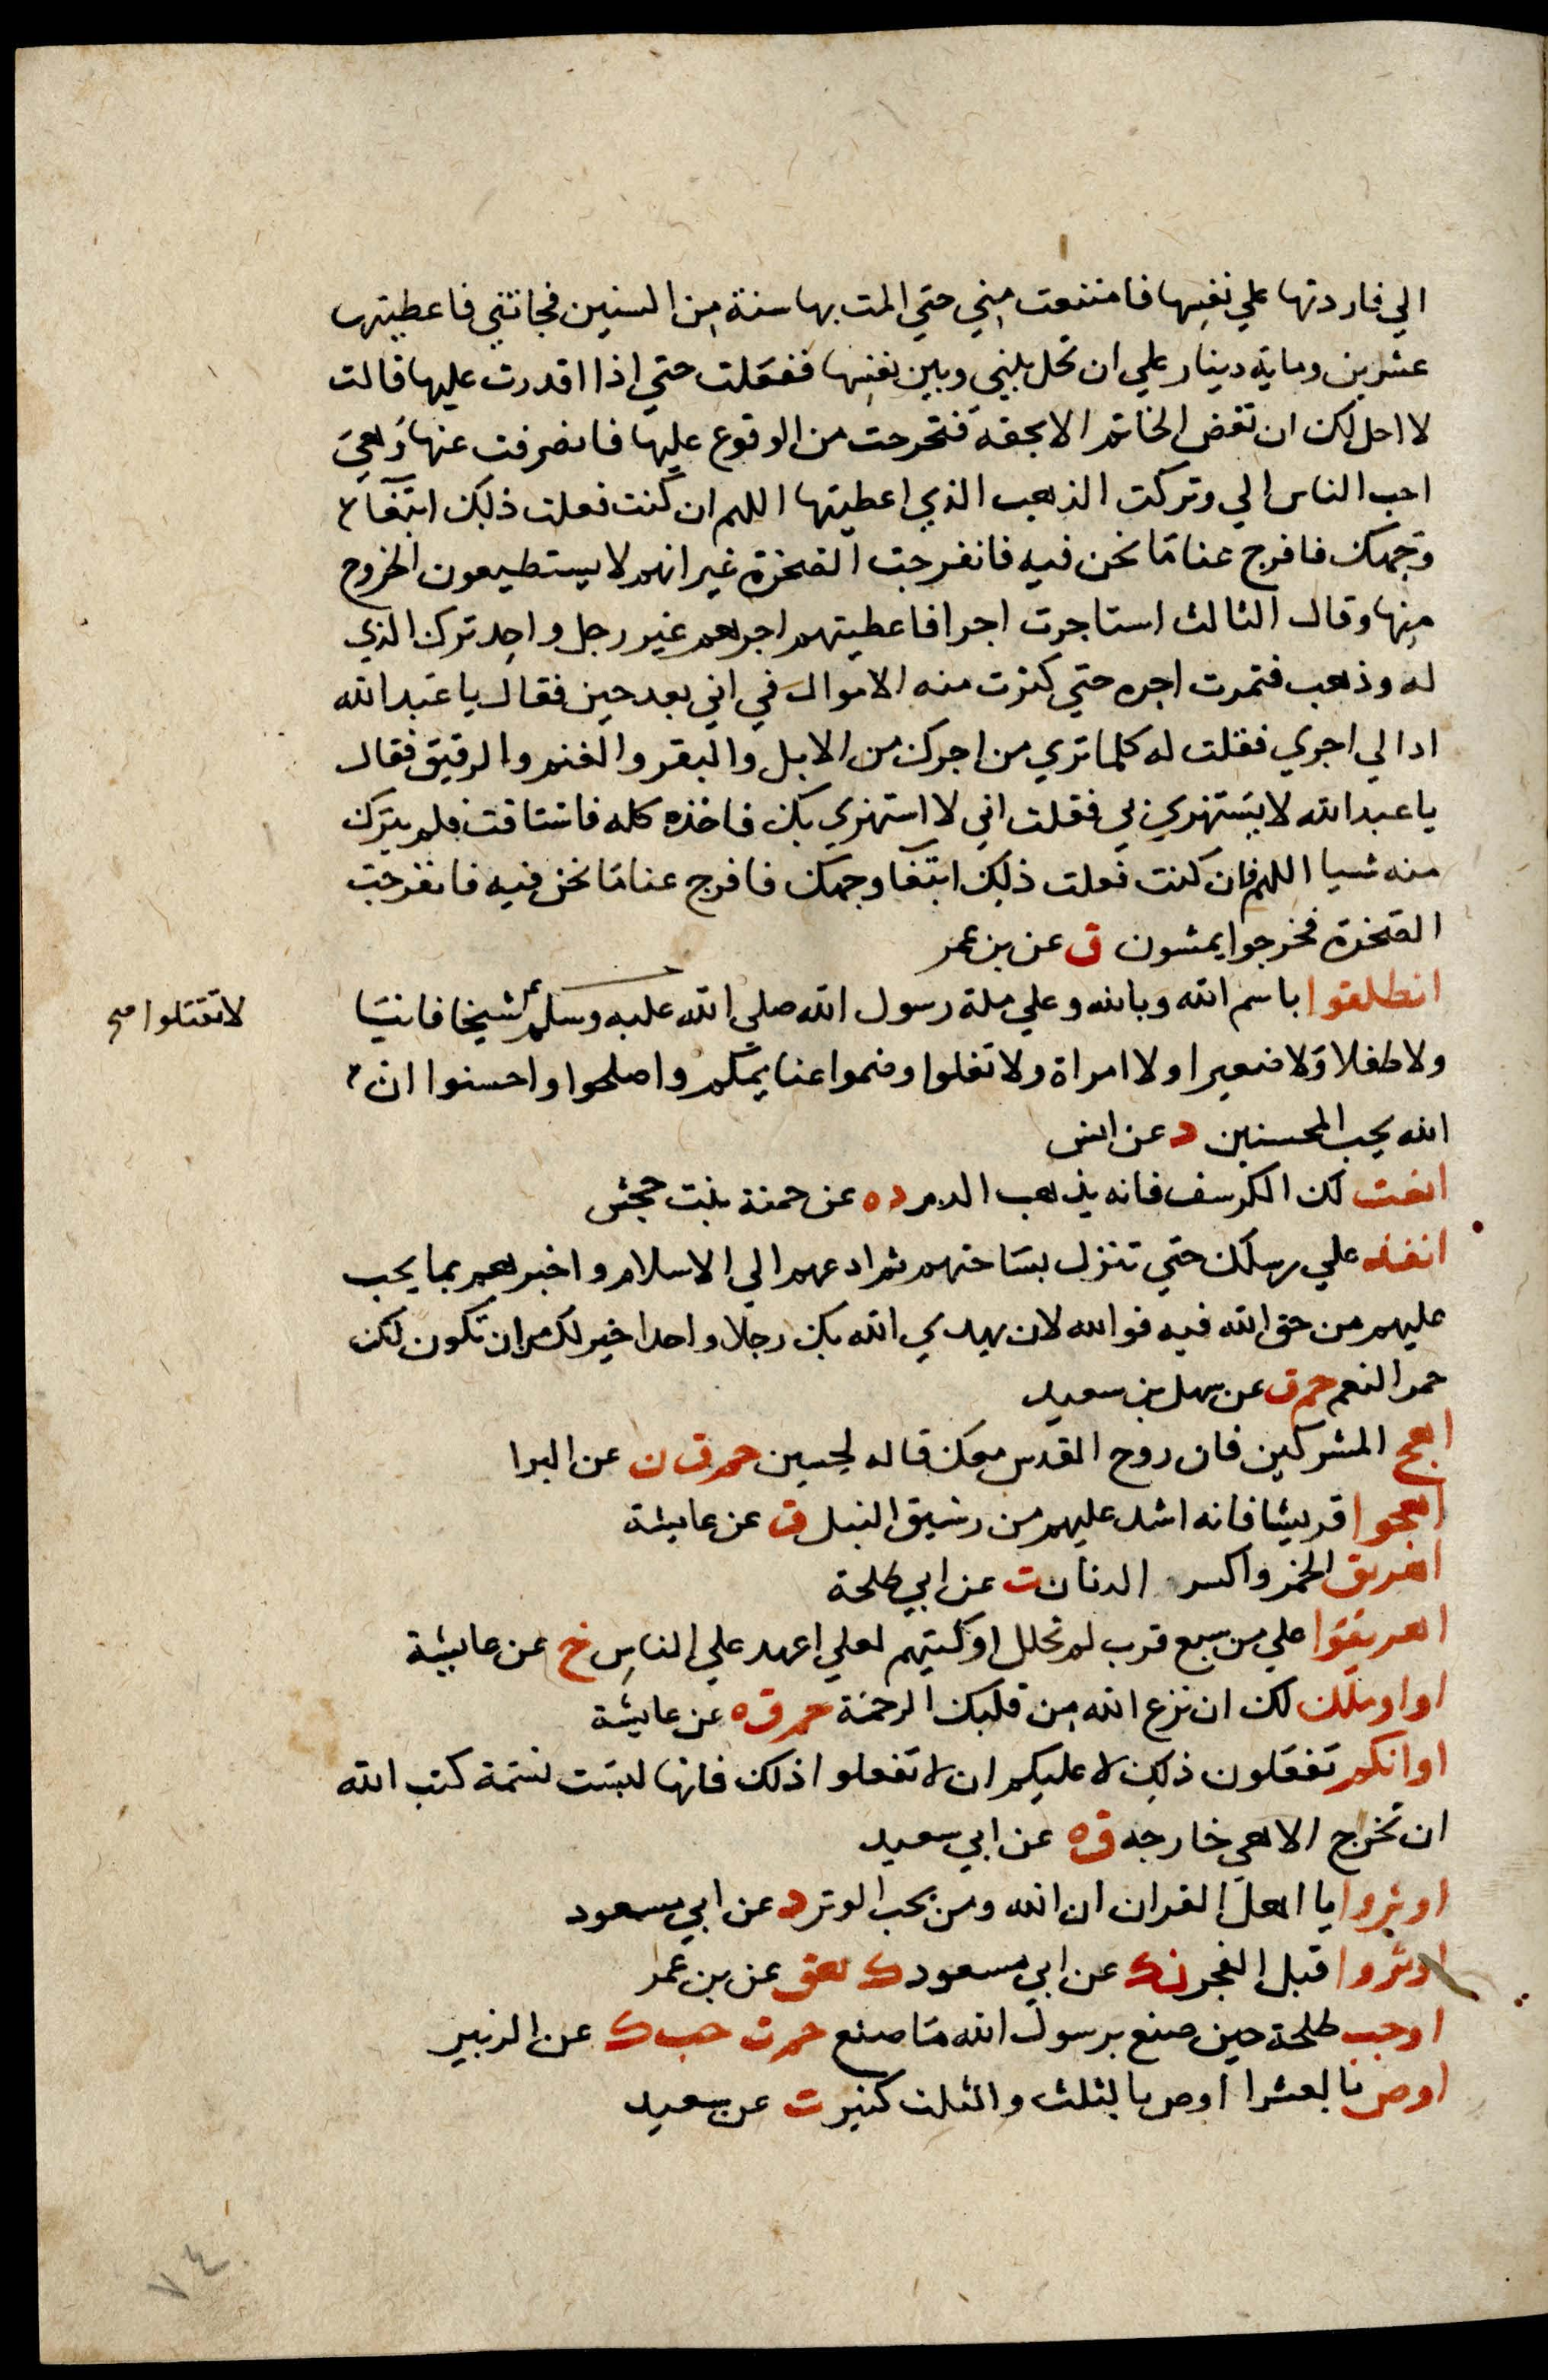 الي فاردتها علي نفسها فامتنعت مني حتي المت بها سنة من السنين فجاتني فاعطيتها
عشرين وماية دينار علي ان تخل بيني وبين نفسها ففعلت حتي اذا اقدرت عليها قالت
لا احل لك ان تفض الخاتم الا بحقه فتحرجت من الوقوع عليها فانصرفت عنها وهي
احب الناس الي وتركت الذهب الذي اعطيتها اللهم ان كنت فعلت ذلك ابتغا
وجهك فافرج عنا ما نحن فيه فانفرجت الصخرة غير انهم لا يستطيعون الخروج
منها وقال الثالث استاجرت اجرا فاعطيتهم اجرهم غير رجل واحد ترك الذي
له وذهب فثمرت اجره حتي كثرت منه الاموال في اني بعد حين فقال يا عبد الله
ادا لي اجري فقلت له كلما تري من اجرك من الابل والبقر والغنم والرقيق فقال
يا عبد الله لا يستهزي بي فقلت اني لا استهزي بك فاخذه كله فاستاقت فلم يترك
منه شيا اللهم فان كنت فعلت ذلك ابتغا وجهك فافرج عنا ما نحن فيه فانفرجت
الصخرة فخرجوا يمشون ق عن بن عمر
انطلقوا باسم الله وبالله وعلي ملة رسول الله صلي الله عليه وسلم شيخا فانيا
لا تقتلوا صح
ولا طفلا ولا صغيرا ولا امراة ولا تغلوا وضموا غنايمكم واصلحوا واحسنوا ان
الله يحب المحسنين د عن انس
انعت لك الكرسف فانه يذهب الدم د ه عن حمنة بنت جحش
انفذ علي رسلك حتي تنزل بساحتهم ثم ادعهم الي الاسلام واخبرهم بما يجب
عليهم من حق الله فيه فوالله لان يهدي الله بك رجلا واحدا خير لك من ان تكون لك
حمر النعم حم ق عن سهل بن سعيد
اهج المشركين فان روح القدس معك قاله لحسين حم ق ن عن البرا
اهجوا قريشا فانه اشد عليهم من رشيق النبل ق عن عايشة
اهريق الخمر واكسر الدنان ت عن ابي طلحة
اهريقوا علي من سبع قرب لم تحلل اوكيتهم لعلي اعهد علي الناس خ عن عايشة
او املك لك ان نزع الله من قلبك الرحمة حم ق ه عن عايشة
اوانكم تفعلون ذلك لا عليكم ان لا تفعلوا ذلك فانها ليست نسمة كتب الله
ان تخرج الا هي خارجه ق ه عن ابي سعيد
اوتروا يا اهل القران ان الله وتر يحب الوتر د عن ابي مسعود
اوتروا قبل الفجر ن ك عن ابي مسعود ك هق عن بن عمر
اوجب طلحة حين صنع برسول الله ما صنع حم ت حب ك عن الزبير
اوص بالعشر ا اوص بالثلث والثلث كثير ت عن سعيد
٧٤